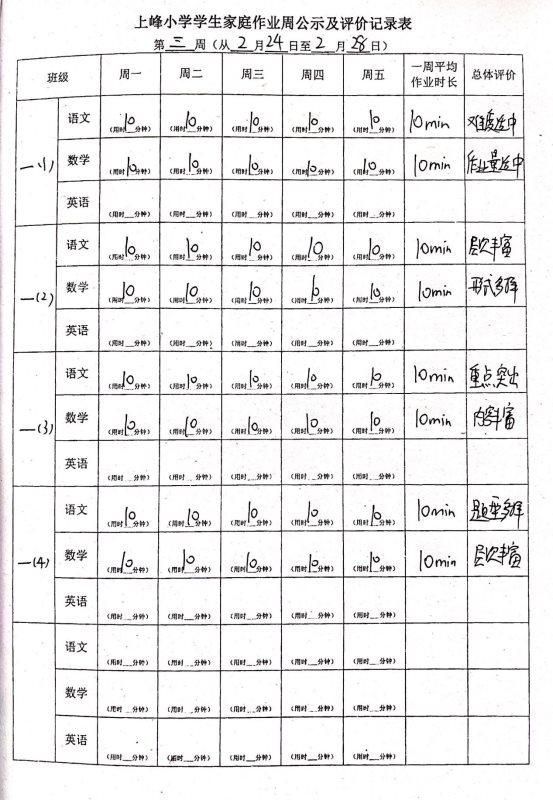 上峰小学学生家庭作业周公示及评价记录表
第三周（从2月24日至2月28日）
班级 周一 周二 周三 周四 周五 一周平均作业时长 总体评价
一(1) 语文 (用时10分钟) (用时10分钟) (用时10分钟) (用时10分钟) (用时10分钟) 10min 难度适中
数学 (用时10分钟) (用时10分钟) (用时10分钟) (用时10分钟) (用时10分钟) 10min 作业量适中
英语 (用时__分钟) (用时__分钟) (用时__分钟) (用时__分钟) (用时__分钟)
一(2) 语文 (用时10分钟) (用时10分钟) (用时10分钟) (用时10分钟) (用时10分钟) 10min 层次丰富
数学 (用时10分钟) (用时10分钟) (用时10分钟) (用时10分钟) (用时10分钟) 10min 形式多样
英语 (用时__分钟) (用时__分钟) (用时__分钟) (用时__分钟) (用时__分钟)
一(3) 语文 (用时10分钟) (用时10分钟) (用时10分钟) (用时10分钟) (用时10分钟) 10min 重点突出
数学 (用时10分钟) (用时10分钟) (用时10分钟) (用时10分钟) (用时10分钟) 10min 内容丰富
英语 (用时__分钟) (用时__分钟) (用时__分钟) (用时__分钟) (用时__分钟)
一(4) 语文 (用时10分钟) (用时10分钟) (用时10分钟) (用时10分钟) (用时10分钟) 10min 题型多样
数学 (用时10分钟) (用时10分钟) (用时10分钟) (用时10分钟) (用时10分钟) 10min 层次丰富
英语 (用时__分钟) (用时__分钟) (用时__分钟) (用时__分钟) (用时__分钟)
语文 (用时__分钟) (用时__分钟) (用时__分钟) (用时__分钟) (用时__分钟)
数学 (用时__分钟) (用时__分钟) (用时__分钟) (用时__分钟) (用时__分钟)
英语 (用时__分钟) (用时__分钟) (用时__分钟) (用时__分钟) (用时__分钟)